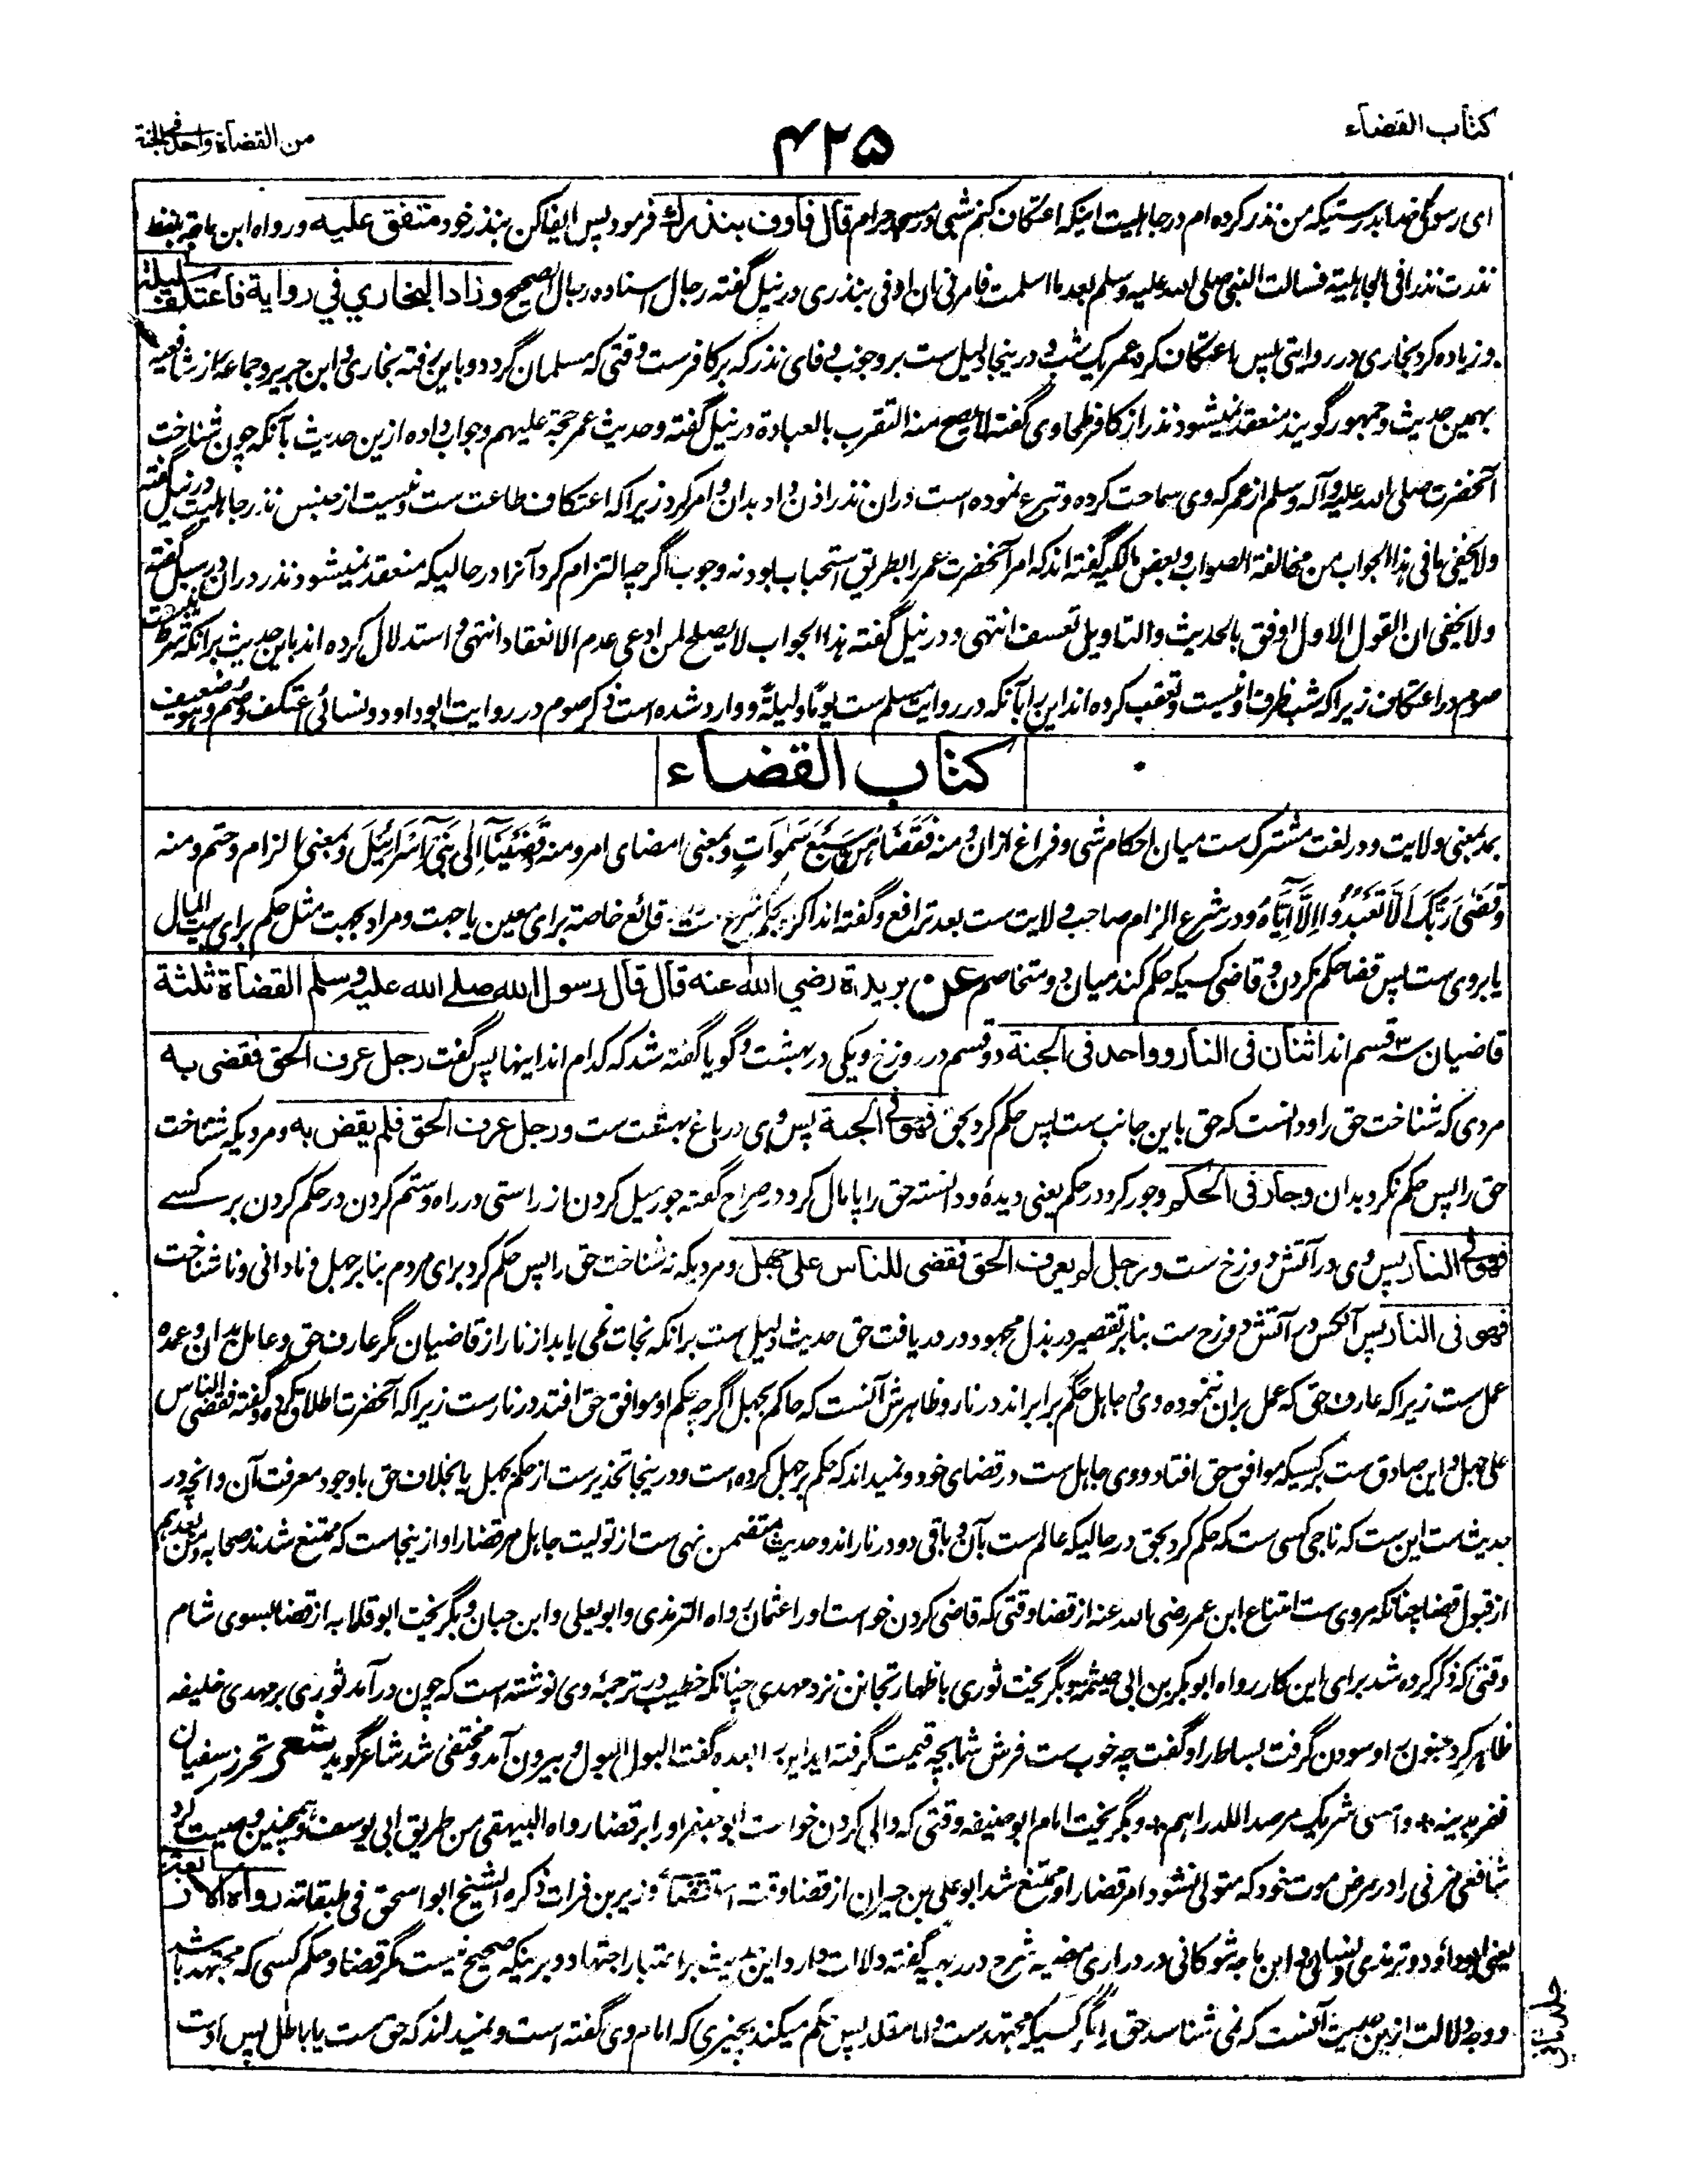 کتاب القضاء
۴۲۵
من القضاة واحد فی الجنة
ای رسول خدا بدرستیکه من نذر کرده ام در جاهلیت اینکه اعتکاف کنم شبی در مسجد حرام قال فأوف بنذرك فرمود پس ایفا کن بنذر خود متفق علیه ورواه ابن ماجه بلفظ
نذرت نذرا فی الجاهلیة فسالت النبی صلی الله علیه وسلم بعد ما اسلمت فامرنی ان اوفی بنذری در نیل گفته رجال اسناده رجال الصحیح وزاد البخاري في رواية فاعتكف ليلة
و زیاده کرد بخاری در روایتی پس اعتکاف کرد عمر یک شب و درینجا دلیل ست بر وجوب وفای نذر که بر کافرست وقتی که مسلمان گردد و باین رفته بخاری و ابن جریر و جماعة از شافعیه
بهمین حدیث و جمهور گویند منعقد نمیشود نذر از کافر طحاوی گفته لا یصح منه التقرب بالعبادة در نیل گفته و حدیث عمر حجة علیهم و جواب داده ازین حدیث بآنکه چون شناخت
آنحضرت صلی الله علیه وآله وسلم از عمر که وی سماحت کرده و تبرع نموده است دران نذر اذن داد بدان و امر کرد زیرا که اعتکاف طاعت ست و نیست از جنس نذر جاهلیت در نیل گفته
ولا یخفی ما فی هذا الجواب من مخالفة الصواب و بعض مالکیه گفته اند که امر آنحضرت عمر را بطریق استحباب بود نه وجوب اگر چه التزام کرد آنرا در حالیکه منعقد نمیشود نذر دران و در سبل گفته
ولا یخفی ان القول الاول اوفق بالحدیث والتاویل تعسف انتهی و در نیل گفته هذا الجواب لا یصلح لمن ادعی عدم الانعقاد انتهی و استدلال کرده اند باین حدیث برانکه شرط نیست
صوم در اعتکاف زیرا که شب ظرف او نیست و تعقب کرده اند این را بآنکه در روایت مسلم ست یوما ولیلة و وارد شده است ذکر صوم در روایت ابوداود و نسائی اعتکف وصم وهو ضعیف
کتاب القضاء
بمد بمعنی ولایت و در لغت مشترک ست میان احکام شی و فراغ ازان و منه فَقَضَاهُنَّ سَبْعَ سَمٰوَاتٍ و بمعنی امضای امر و منه وَقَضَيْنَا إِلَى بَنِي إِسْرَائِيلَ و بمعنی الزام و حتم و منه
وَقَضَى رَبُّكَ أَلَّا تَعْبُدُوا إِلَّا إِيَّاهُ و در شرع الزام صاحب ولایت ست بعد ترافع و گفته اند اکراه بحکم شرع ست در وقائع خاصة برای معین یا جهت و مراد بجهت مثل حکم برای بیت المال
یا بروی ست پس قضا حکم کردن و قاضی کسیکه حکم کند میان دو متخاصم عن بريدة رضي الله عنه قال قال رسول الله صلى الله عليه وسلم القضاة ثلثة
قاضیان سه قسم اند اثنان فی النار وواحد فی الجنة دو قسم در دوزخ و یکی در بهشت و گویا گفته شد که کدام اند اینها پس گفت رجل عرف الحق فقضی به
مردی که شناخت حق را و دانست که حق باین جانب ست پس حکم کرد بحق فهو فی الجنة پس وی در باغ بهشت ست ورجل عرف الحق فلم یقض به و مردیکه شناخت
حق را پس حکم نکرد بدان وجار فی الحکم و جور کرد در حکم یعنی دیده و دانسته حق را پامال کرد در صراح گفته جور میل کردن از راستی در راه و ستم کردن در حکم کردن بر کسے
فهو فی النار پس وی در آتش دوزخ ست ورجل لم یعرف الحق فقضی للناس علی جهل و مردیکه نه شناخت حق را پس حکم کرد برای مردم بنا بر جهل و نادانی و ناشناخت
فهو فی النار پس آنکس در آتش دوزخ ست بنا بر تقصیر در بذل مجهود در دریافت حق حدیث دلیل ست برانکه نجات نمی یابد از نار از قاضیان مگر عارف حق و عامل بدان و عمده
عمل ست زیرا که عارف حق که عمل بران ننموده وی و جاهل حکم برابر اند در نار و ظاهرش آنست که حاکم بجهل اگر چه حکم او موافق حق افتد در نارست زیرا که آنحضرت اطلاق کرده و گفته فقضی للناس
علی جهل و این صادق ست بر کسیکه موافق حق افتاد و وی جاهل ست در قضای خود و نمیداند که حکم بر جهل کرده است و درینجا تحذیرست از حکم بجهل یا بخلاف حق با وجود معرفت آن و انچه در
حدیث ست این ست که ناجی کسی ست که حکم کرد بحق در حالیکه عالم ست بآن و باقی دو در نار اند و حدیث متضمن نهی ست از تولیت جاهل مر قضا را و ازینجاست که ممتنع شدند صحابه و من بعدهم
از قبول قضا چنانکه مروی ست امتناع ابن عمر رضی الله عنه از قضا وقتی که قاضی کردن خواست او را عثمان رواه الترمذی وابو یعلی وابن حبان و بگریخت ابو قلابه از قضا بسوی شام
وقتی که ذکر کرده شد برای این کار رواه ابوبکر بن ابی خیثمه و بگریخت ثوری باظهار تجانن نزد مهدی چنانکه خطیب در ترجمهٔ وی نوشته است که چون درآمد ثوری بر مهدی خلیفه
ظاهر کرد جنون را و سودن گرفت بساط را و گفت چه خوب ست فرش شما بچه قیمت گرفته اید این را بعده گفت البول البول و بیرون آمد و مختفی شد شاعر گوید شعر تحرز سفیان
ففر بدینه ✤ وامسی شریک مرصدا للدراهم ✤ و بگریخت امام ابو حنیفه وقتی که والی کردن خواست ابو جعفر او را بر قضا رواه البیهقی من طریق ابی یوسف و همچنین وصیت کرد
شافعی مزنی را در مرض موت خود که متولی نشود امر قضا را و ممتنع شد ابو علی بن خیران از قضا وقت استقضاء وزیر بن فرات ذکره الشیخ ابو اسحق فی طبقاته رواه الاربعة
یعنی ابوداود و ترمذی و نسائی و ابن ماجه شوکانی در دراری مضیه شرح درر بهیه گفته دلالت دارد این حدیث بر اعتبار اجتهاد و برینکه صحیح نیست مگر قضا و حکم کسی که مجتهد باشد
و وجه دلالت ازین حدیث آنست که نمی شناسد حق را مگر کسیکه مجتهدست و اما مقلد پس حکم میکند بچیزی که امام وی گفته است و نمیداند که حق ست یا باطل پس اوست